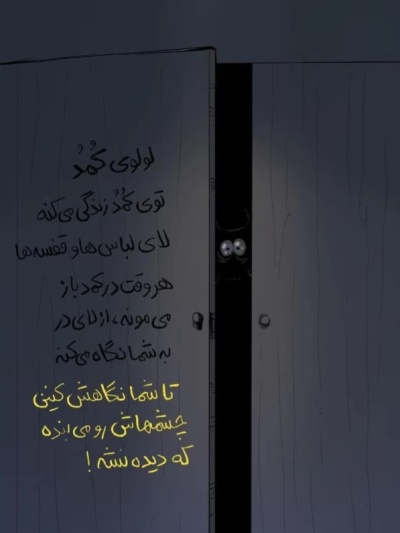 لولوی کُمُد
توی کُمُد زندگی می‌کنه
لای لباس‌ها و قفسه‌ها
هر وقت در کمد باز
می‌مونه، از لای در
به شما نگاه می‌کنه
تا شما نگاهش کنی
چشمهاش رو می‌بنده
که دیده نشه!